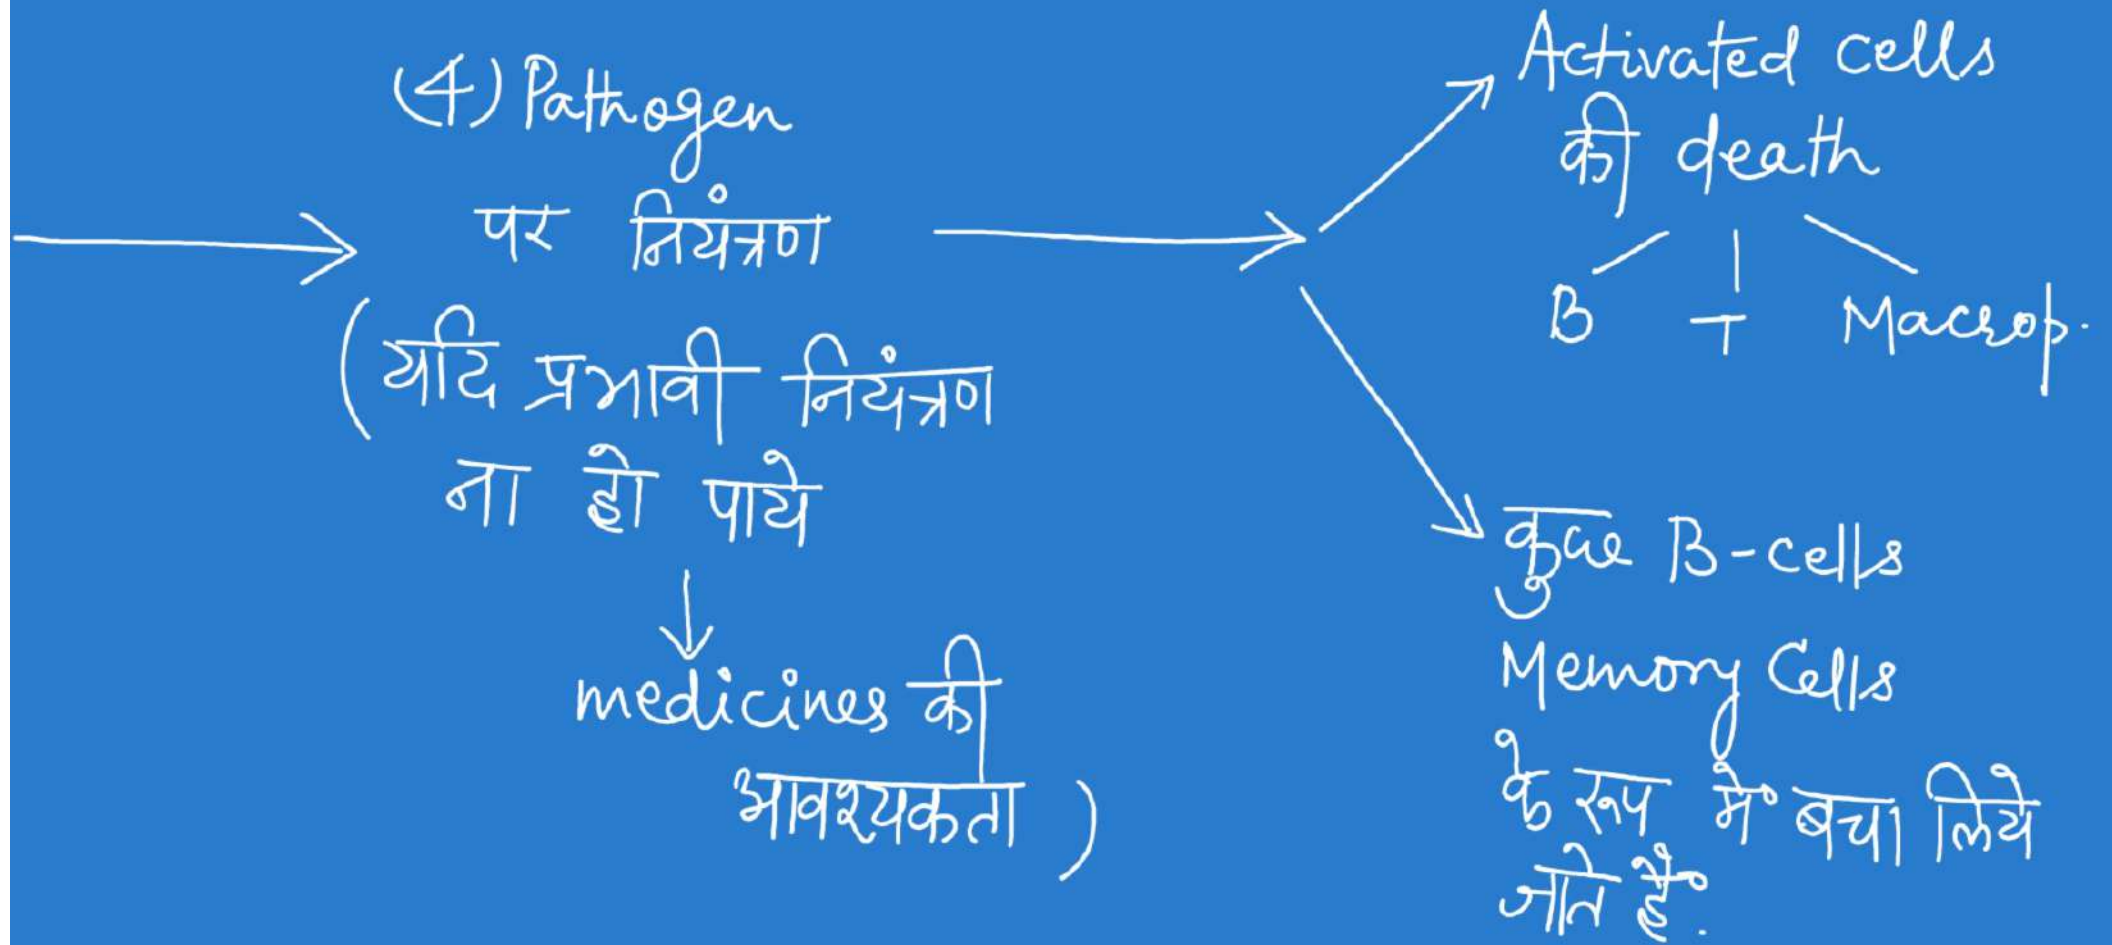 (4) Pathogen
पर नियंत्रण
(यदि प्रभावी नियंत्रण
ना हो पाये
medicines की
आवश्यकता )
Activated cells
की death
B T Macrop.
कुछ B-cells
Memory Cells
के रूप में बचा लिये
जाते हैं.